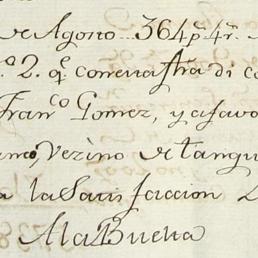 de Agosto 364 p.s 4 r.s
n.o 2. q.e con esta fha di
Fran.co Gomez, y a favo
Vezino de Langu
a la Satisfaccion
A la Buelta